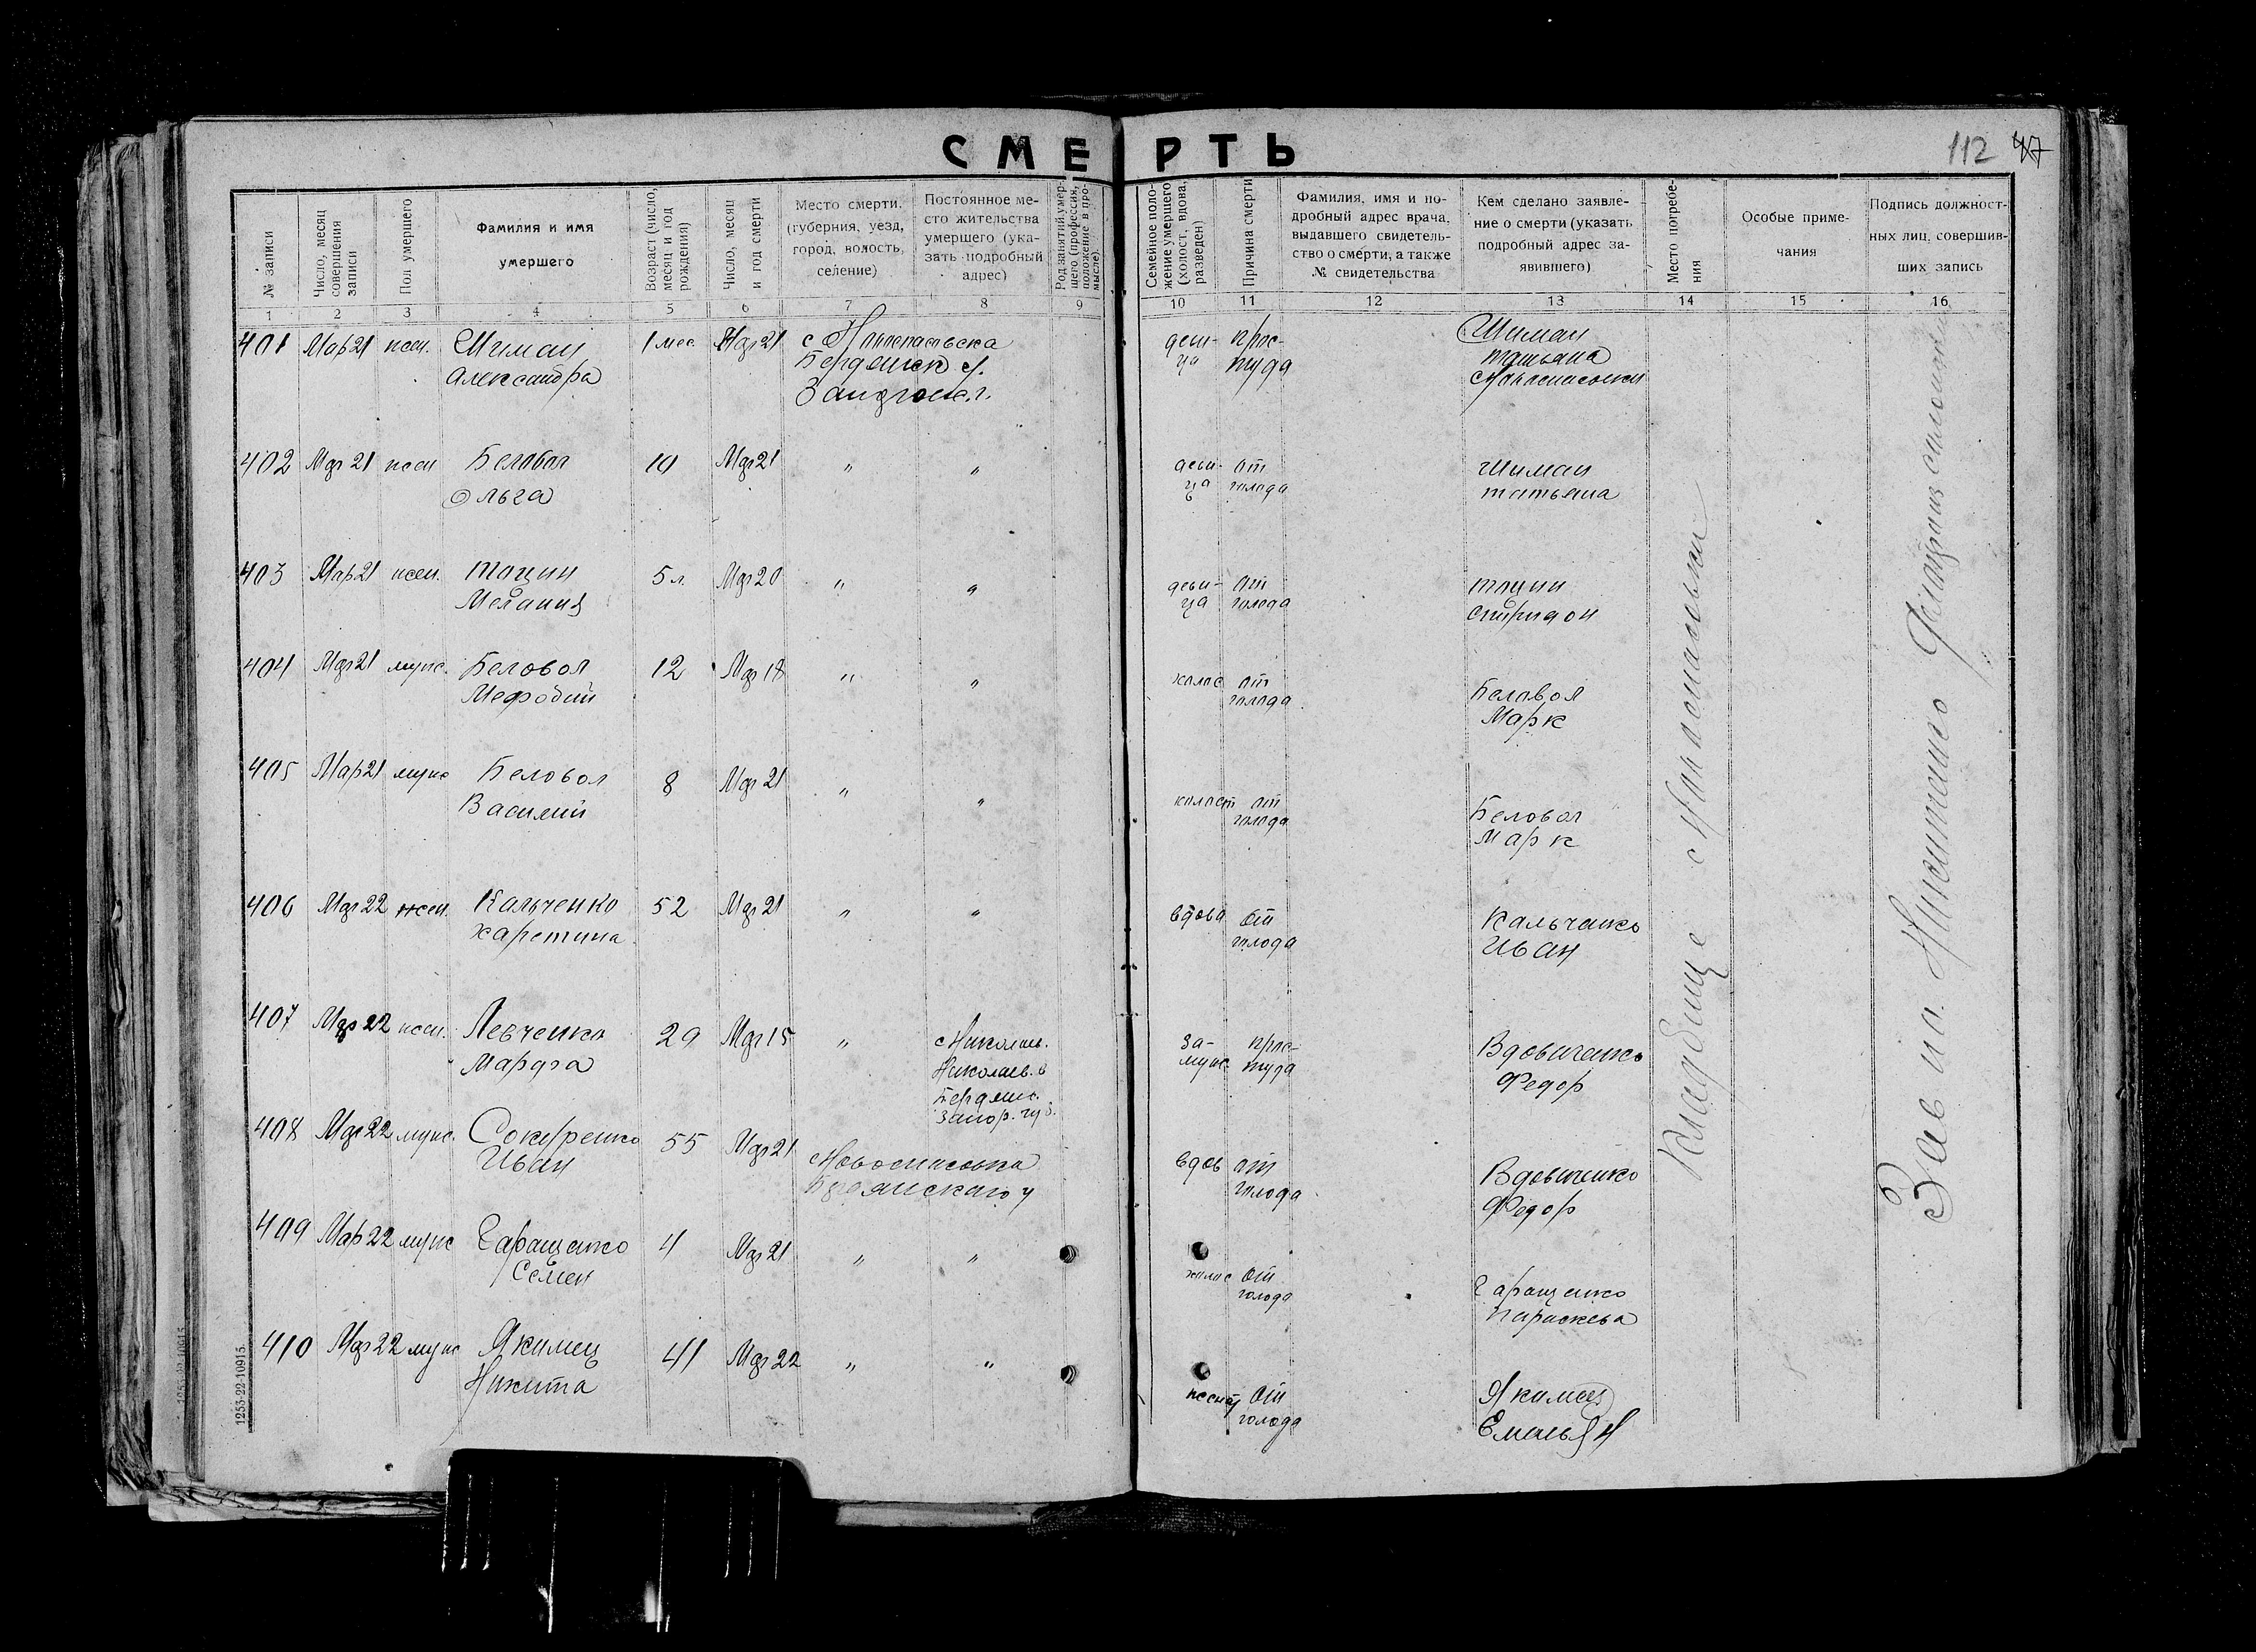 СМЕРТЬ
112 47
№ записи
Число, месяц совершения записи
Пол умершего
Фамилия и имя умершего
Возраст (число, месяц и год рождения)
Число, месяц и год смерти
Место смерти. (губерния, уезд, город, волость, селение)
Постоянное место жительства умершего (указать подробный адрес)
Род занятий умершего (профессия, положение в промысле).
Семейное положение умершего (холост, вдова, разведен)
Причина смерти
Фамилия, имя и подробный адрес врача, выдавшего свидетельство о смерти, а также № свидетельства
Кем сделано заявление о смерти (указать подробный адрес заявившего)
Место погребения
Особые примечания
Подпись должностных лиц, совершивших запись
1 2 3 4 5 6 7 8 9 10 11 12 13 14 15 16
401 Мар 21 жен. Шиман 1 мес Мар 21 с. деви- прос- Шиман
Александра Бердянск у. ца туда татьяна
402 Мар 21 жен Беловол 10 Мар 21 " " деви- от Шиман
Ольга ца голода татьяна
403 Мар 21 жен. 5 л. Мар 20 " " деви- от
Мелания ца голода Спиридон
404 Мар 21 муж. Беловол 12 Мар 18 " " холос от Беловол
Мефодий голода Марк
405 Мар 21 муж Беловол 8 Мар 21 " " холост от Беловол
Василий голода Марк
406 Мар 22 жен. Кальченко 52 Мар 21 " " вдова от Кальченко
Харетина голода Иван
407 Мар 22 жен. Левченко 29 Мар 15 " с Николаев. за- прос- Вдовиченко
Марфа Николаев. в муж. туда Федор
Бердянс.
Запор. губ.
408 Мар 22 муж. Сокуренко 55 Мар 21 с Новоспасовка вдов от Вдовиченко
Иван Бердянскаго у голода Федор
409 Мар 22 муж Гаращенко 4 Мар 21 " " холос от Гаращенко
Семен голода Параскева
410 Мар 22 муж Якимец 41 Мар 22 " " женат от Якимец
Никита голода Емельян
Кладбище с Новоспасовки
Зав
1253-22-10915.